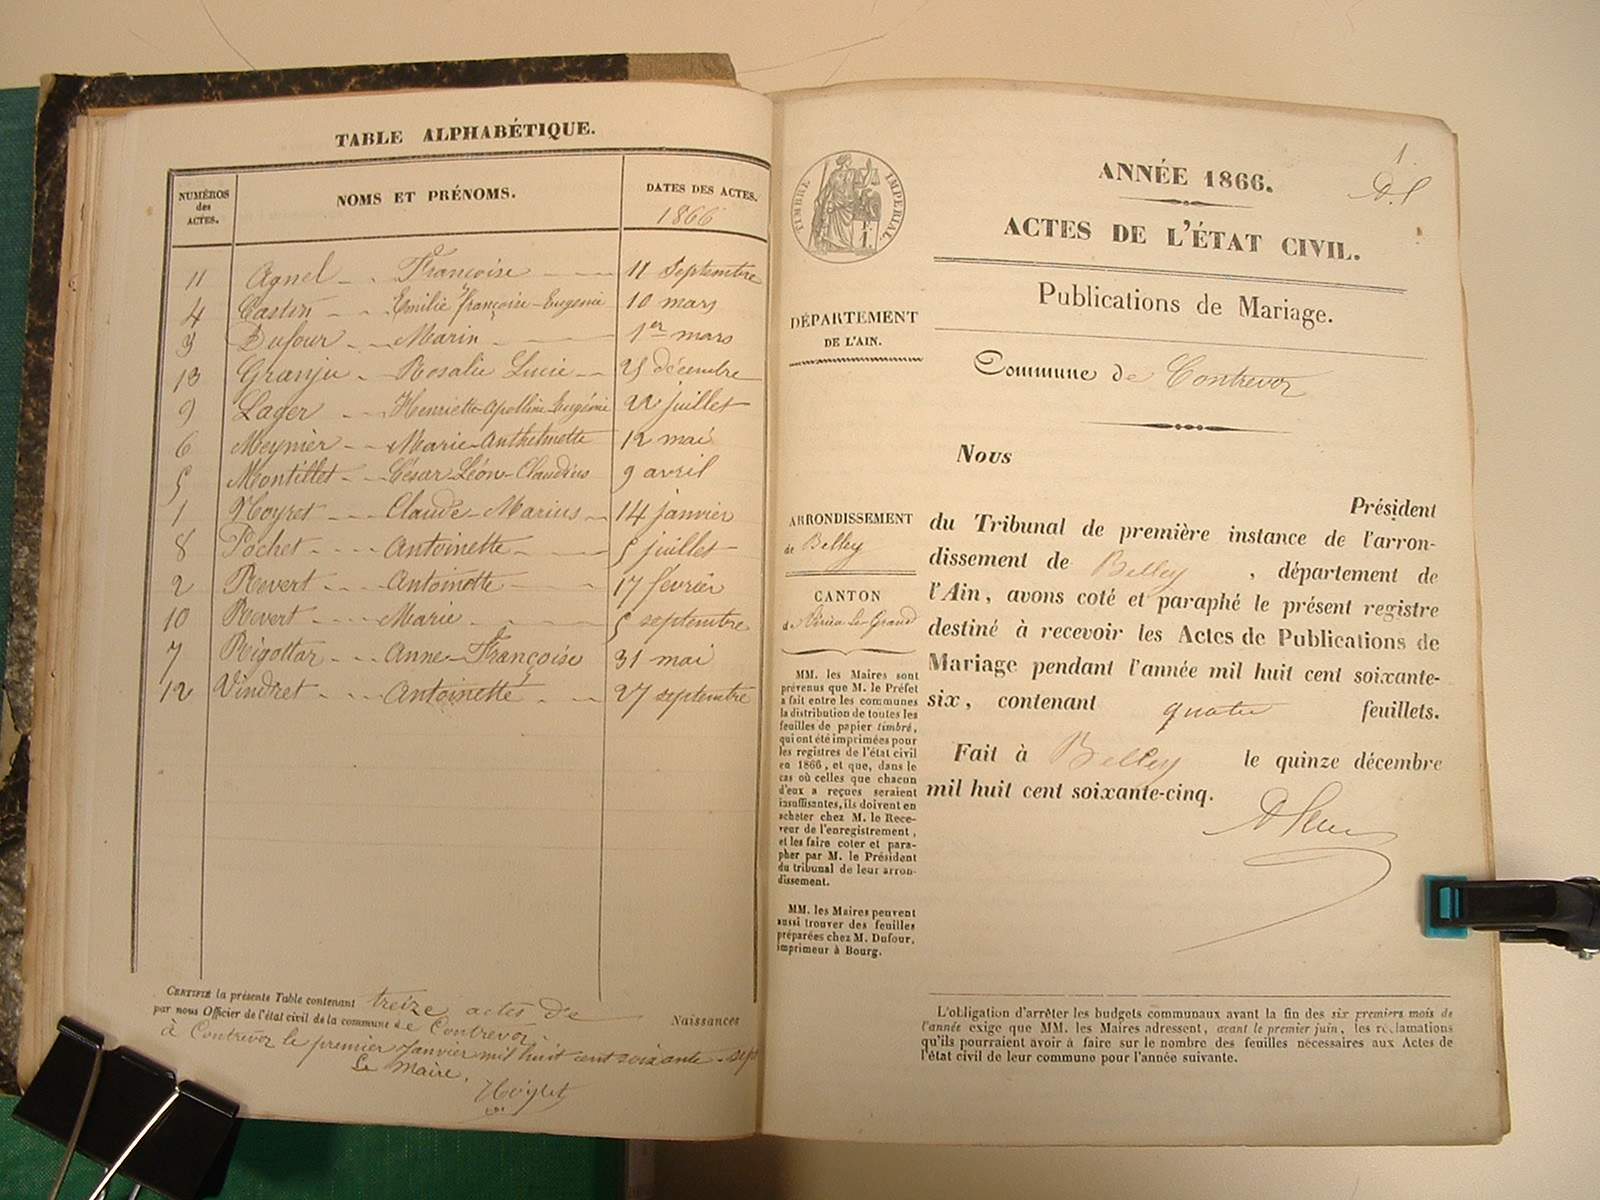 TABLE ALPHABÉTIQUE.
NUMÉROS des ACTES. NOMS ET PRÉNOMS. DATES DES ACTES. 1866
11 Agnel Françoise 11 Septembre
4 Castin Emilie Françoise-Eugenie 10 mars
3 Dufour Marin 1er mars
13 Granju Rosalie Lucie 25 décembre
9 Lager Henriette-Apolline Eugénie 22 juillet
6 Meynier Marie-Anthelmette 12 mai
5 Montillet César-Léon-Claudius 9 avril
1 Noyret Claude-Marius 14 janvier
8 Pochet Antoinette 5 juillet
2 Revert Antoinette 17 février
10 Revert Marie 5 septembre
7 Rigottar Anne-Françoise 31 mai
12 Vindret Antoinette 27 septembre
CERTIFIÉ la présente Table contenant treize actes de Naissances
par nous Officier de l'état civil de la commune de Contrevoz.
à Contrevoz le premier Janvier mil huit cent soixante-sept
Le Maire,
Noyret
1.
TIMBRE IMPERIAL
F.
1.
ANNÉE 1866.
ACTES DE L'ÉTAT CIVIL.
Publications de Mariage.
DÉPARTEMENT
DE L'AIN.
Commune de Contrevoz
ARRONDISSEMENT
de Belley
CANTON
de Virieu-le-Grand
MM. les Maires sont
prévenus que M. le Préfet
a fait entre les communes
la distribution de toutes les
feuilles de papier timbré,
qui ont été imprimées pour
les registres de l'état civil
en 1866, et que, dans le
cas où celles que chacun
d'eux a reçues seraient
insuffisantes, ils doivent en
acheter chez M. le Rece-
veur de l'enregistrement,
et les faire coter et para-
pher par M. le Président
du tribunal de leur arron-
dissement.
MM. les Maires peuvent
aussi trouver des feuilles
préparées chez M. Dufour,
imprimeur à Bourg.
Nous
Président
du Tribunal de première instance de l'arron-
dissement de Belley, département de
l'Ain, avons coté et paraphé le présent registre
destiné à recevoir les Actes de Publications de
Mariage pendant l'année mil huit cent soixante-
six, contenant quatre feuillets.
Fait à Belley le quinze décembre
mil huit cent soixante-cinq.
L'obligation d'arrêter les budgets communaux avant la fin des six premiers mois de
l'année exige que MM. les Maires adressent, avant le premier juin, les réclamations
qu'ils pourraient avoir à faire sur le nombre des feuilles nécessaires aux Actes de
l'état civil de leur commune pour l'année suivante.